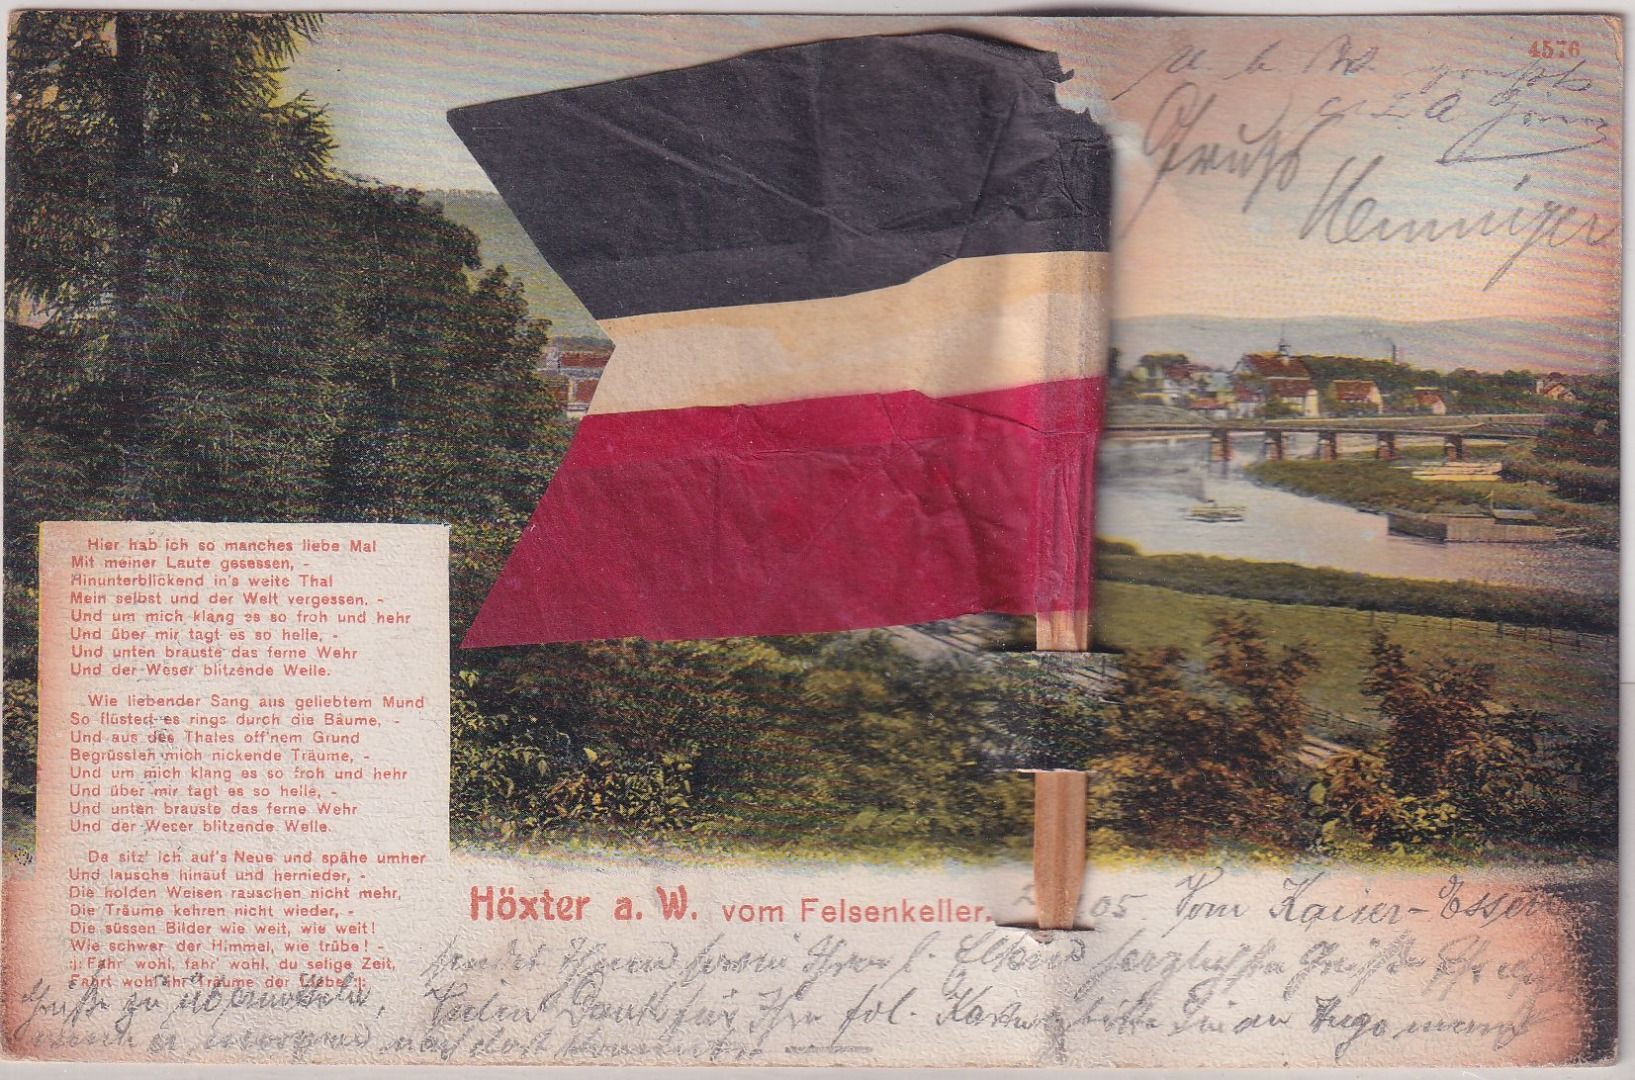 4576
u. s. w.
Gruß
Henniger
Hier hab ich so manches liebe Mal
Mit meiner Laute gesessen, -
Hinunterblickend in's weite Thal
Mein selbst und der Welt vergessen, -
Und um mich klang es so froh und hehr
Und über mir tagt es so helle, -
Und unten brauste das ferne Wehr
Und der Weser blitzende Welle.
Wie liebender Sang aus geliebtem Mund
So flüstert es rings durch die Bäume, -
Und aus des Thales off'nem Grund
Begrüssten mich nickende Träume, -
Und um mich klang es so froh und hehr
Und über mir tagt es so helle, -
Und unten brauste das ferne Wehr
Und der Weser blitzende Welle.
Da sitz' ich auf's Neue und spähe umher
Und lausche hinauf und hernieder, -
Die holden Weisen rauschen nicht mehr,
Die Träume kehren nicht wieder, -
Die süssen Bilder wie weit, wie weit!
Wie schwer der Himmel, wie trübe! -
:|: Fahr' wohl, fahr' wohl, du selige Zeit,
Fahrt wohl ihr Träume der Liebe :|:
Höxter a. W. vom Felsenkeller.
05. Vom Kaiser-Essen
sendet Ihnen sowie Ihren l. Eltern herzlichste Grüße
Vielen Dank für Ihre frdl. Karte, bitte Sie an Hugo meine
Grüße zu übermitteln,
wenn er morgen nach dort kommt.